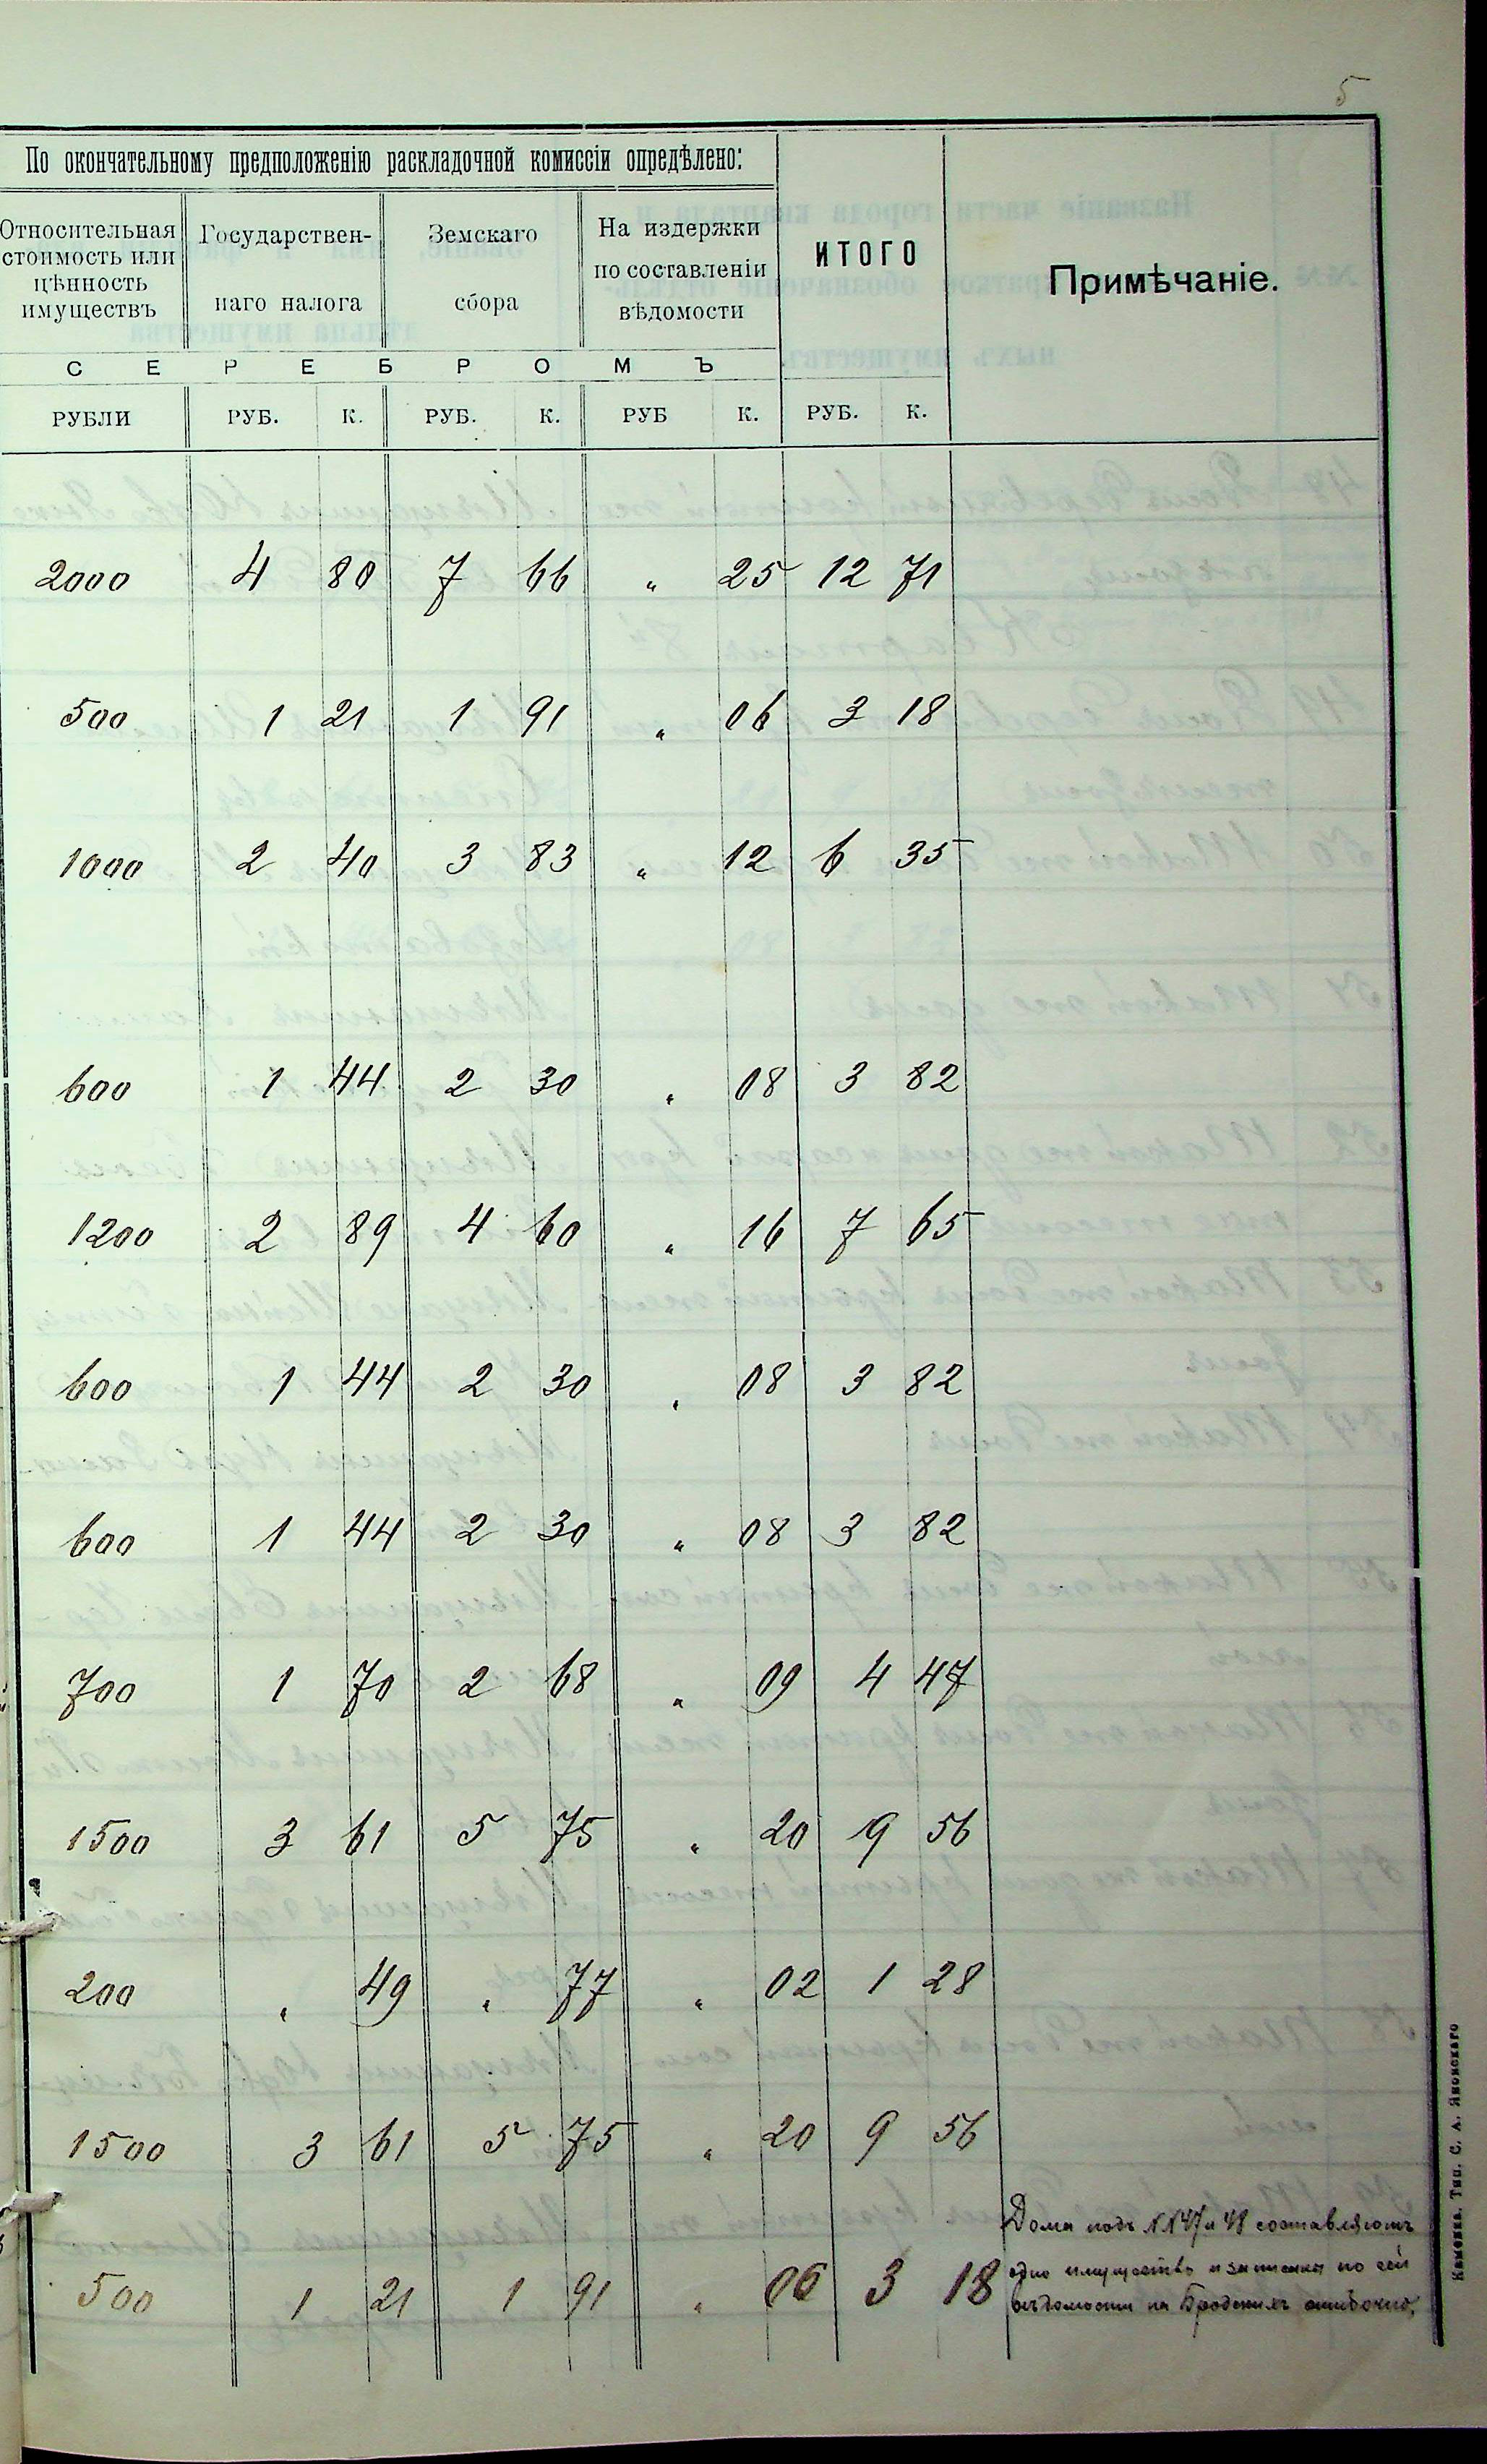 5
По окончательному предположенію раскладочной комиссіи опредѣлено:
Относительная стоимость или цѣнность имуществъ
Государствен-
наго налога
Земскаго
сбора
На издержки
по составленіи
вѣдомости
ИТОГО
Примѣчаніе.
СЕРЕБРОМЪ
РУБЛИ РУБ. К. РУБ. К. РУБ К. РУБ. К.
2000 4 80 7 66 " 25 12 71
500 1 21 1 91 " 06 3 18
1000 2 40 3 83 " 12 6 35
600 1 44 2 30 " 08 3 82
1200 2 89 4 60 " 16 7 65
600 1 44 2 30 " 08 3 82
600 1 44 2 30 " 08 3 82
700 1 70 2 68 " 09 4 47
1500 3 61 5 75 " 20 9 56
200 " 49 " 77 " 02 1 28
1500 3 61 5 75 " 20 9 56
500 1 21 1 91 " 06 3 18
Дома подъ NN 47 и 48 составляютъ
одно имущество и записаны по сей
вѣдомости на Бродскихъ ошибочно.
Каменка. Тип. С. А. Яновскаго